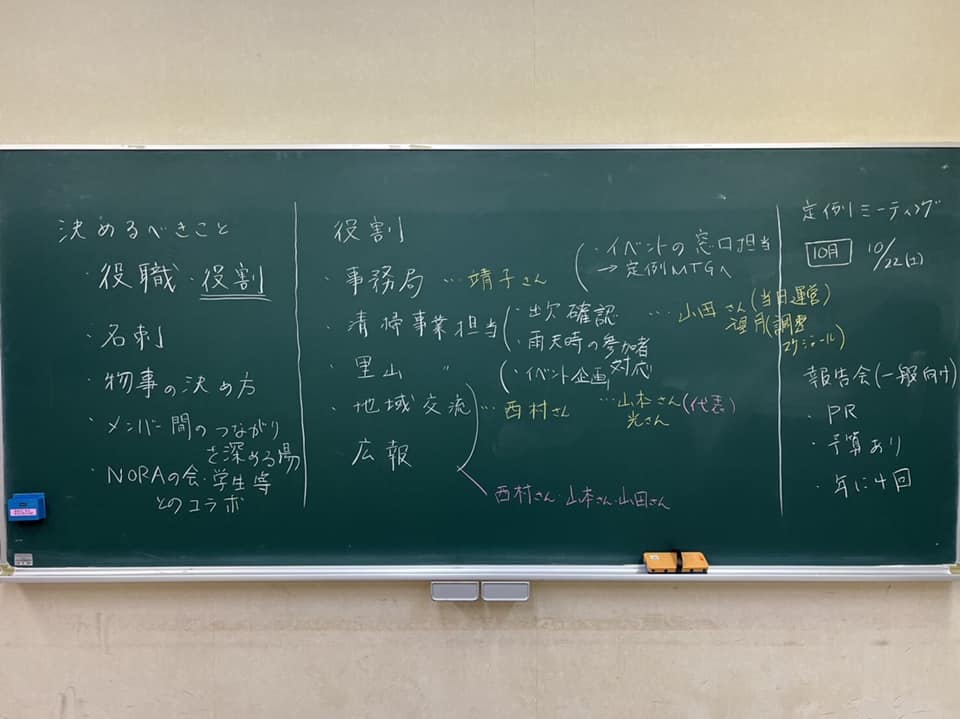 決めるべきこと
・役職・役割
・名刺
・物事の決め方
・メンバー間のつながり
を深める場
・NORAの会・学生等
とのコラボ
役割
・事務局 …靖子さん
(・イベントの窓口担当
→定例MTGへ
・清掃事業担当
(・出欠確認
・雨天時の参加者
対応
…山田さん(当日運営)
(調整
スケジュール)
・里山 〃
(・イベント企画
…山本さん(代表)
光さん
・地域交流 …西村さん
・広報
西村さん・山本さん・山田さん
定例ミーティング
10月 10/22(土)
報告会(一般向け)
・PR
・予算あり
・年に4回